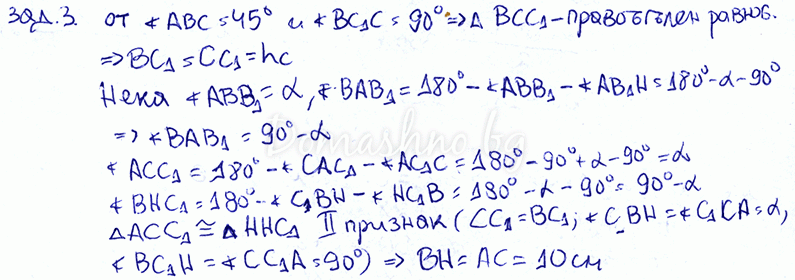 зад.3. от ∢ABC=45° и ∢BC₁C=90° ⇒ Δ BCC₁-правоъгълен равноб.
⇒ BC₁=CC₁=hc
Нека ∢ABB₁=α, ∢BAB₁=180°-∢ABB₁-∢AB₁H=180°-α-90°
⇒ ∢BAB₁=90°-α
∢ACC₁=180°-∢CAC₁-∢AC₁C=180°-90°+α-90°=α
∢BHC₁=180°-∢C₁BH-∢HC₁B=180°-α-90°=90°-α
ΔACC₁≅ΔHHC₁ II признак (CC₁=BC₁; ∢C₁BH=∢C₁CA=α,
∢BC₁H=∢CC₁A=90°) ⇒ BH=AC=10см
Domashno.bg